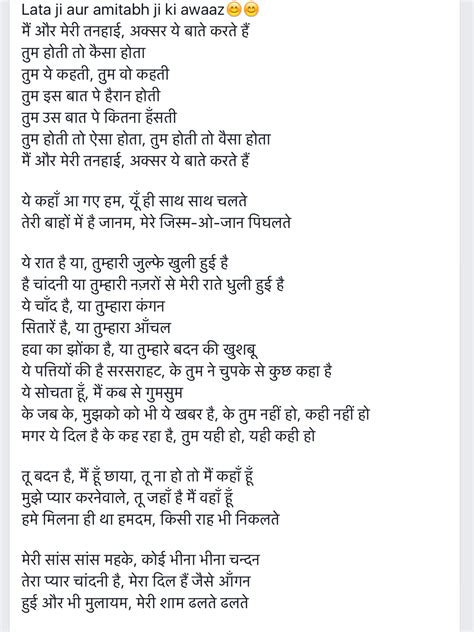 Lata ji aur amitabh ji ki awaaz😊😊
मैं और मेरी तनहाई, अक्सर ये बाते करते हैं
तुम होती तो कैसा होता
तुम ये कहती, तुम वो कहती
तुम इस बात पे हैरान होती
तुम उस बात पे कितना हँसती
तुम होती तो ऐसा होता, तुम होती तो वैसा होता
मैं और मेरी तनहाई, अक्सर ये बाते करते हैं
ये कहाँ आ गए हम, यूँ ही साथ साथ चलते
तेरी बाहों में है जानम, मेरे जिस्म-ओ-जान पिघलते
ये रात है या, तुम्हारी जुल्फे खुली हुई है
है चांदनी या तुम्हारी नज़रों से मेरी राते धुली हुई है
ये चाँद है, या तुम्हारा कंगन
सितारें है, या तुम्हारा आँचल
हवा का झोंका है, या तुम्हारे बदन की खुशबू
ये पत्तियों की है सरसराहट, के तुम ने चुपके से कुछ कहा है
ये सोचता हूँ, मैं कब से गुमसुम
के जब के, मुझको को भी ये खबर है, के तुम नहीं हो, कही नहीं हो
मगर ये दिल है के कह रहा है, तुम यही हो, यही कही हो
तू बदन है, मैं हूँ छाया, तू ना हो तो मैं कहाँ हूँ
मुझे प्यार करनेवाले, तू जहाँ है मैं वहाँ हूँ
हमे मिलना ही था हमदम, किसी राह भी निकलते
मेरी सांस सांस महके, कोई भीना भीना चन्दन
तेरा प्यार चांदनी है, मेरा दिल हैं जैसे आँगन
हुई और भी मुलायम, मेरी शाम ढलते ढलते